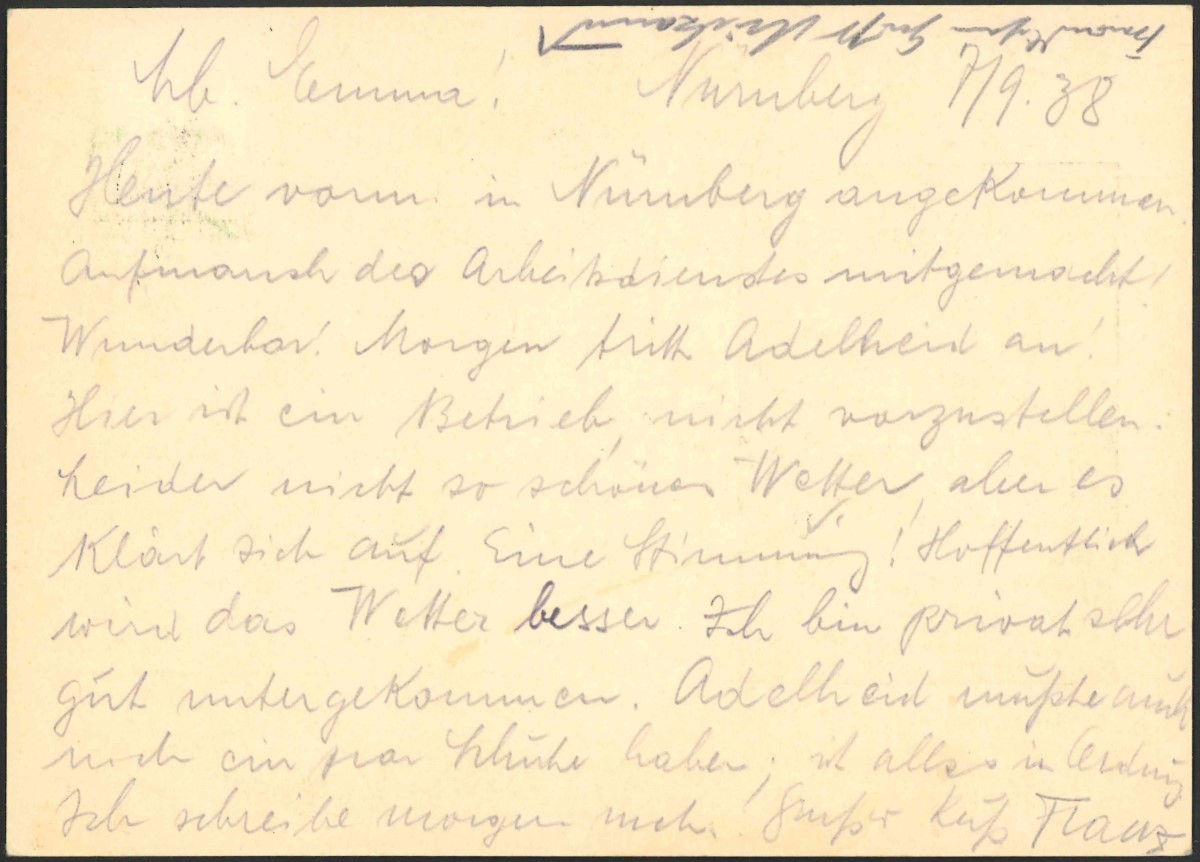 Lb. Emma! Nürnberg 7/9.38
Heute vorm. in Nürnberg angekommen.
Aufmarsch des Arbeitsdienstes mitgemacht!
Wunderbar! Morgen tritt Adelheid an!
Hier ist ein Betrieb, nicht vorzustellen.
Leider nicht so schönes Wetter, aber es
klärt sich auf. Eine Stimmung! Hoffentlich
wird das Wetter besser. Ich bin privat sehr
gut untergekommen. Adelheid mußte auch
noch ein par Schuhe haben, ist alles in Ordnung
Ich schreibe morgen mehr! Gruß u Kuß Franz